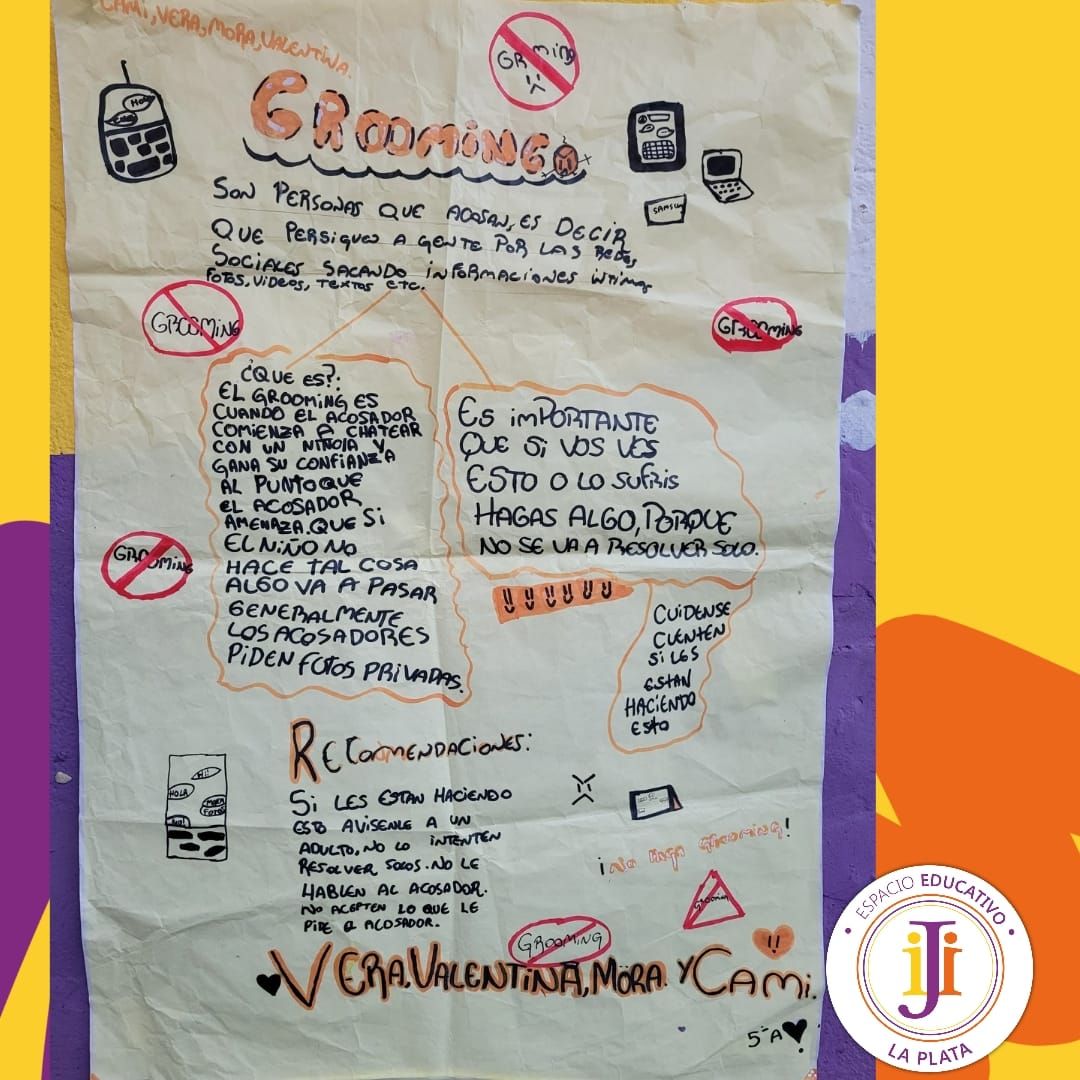 CAMI, VERA, MORA, VALENTINA.
GROOMING
GROOMING
HOLA
SAMSUNG
SON PERSONAS QUE ACOSAN, ES DECIR
QUE PERSIGUEN A GENTE POR LAS REDES
SOCIALES SACANDO INFORMACIONES INTIMAS
FOTOS, VIDEOS, TEXTOS ETC.
GROOMING
GROOMING
¿QUE ES?:
EL GROOMING ES
CUANDO EL ACOSADOR
COMIENZA A CHATEAR
CON UN NIÑO/A Y
GANA SU CONFIANZA
AL PUNTO QUE
EL ACOSADOR
AMENAZA. QUE SI
EL NIÑO NO
HACE TAL COSA
ALGO VA A PASAR
GENERALMENTE
LOS ACOSADORES
PIDEN FOTOS PRIVADAS.
ES IMPORTANTE
QUE SI VOS VES
ESTO O LO SUFRIS
HAGAS ALGO, PORQUE
NO SE VA A RESOLVER SOLO.
GROOMING
!!!!!!
CUIDENSE
CUENTEN
SI LES
ESTAN
HACIENDO
ESTO
RECOMENDACIONES:
SI LES ESTAN HACIENDO
ESTO AVISENLE A UN
ADULTO, NO LO INTENTEN
RESOLVER SOLOS. NO LE
HABLEN AL ACOSADOR.
NO ACEPTEN LO QUE LE
PIDE A ACOSADOR.
HI!
HOLA
¡NO HAGA GROOMING!
GROOMING
GROOMING
!!
VERA, VALENTINA, MORA. Y CAMI.
5ªA
ESPACIO EDUCATIVO
iJi
LA PLATA